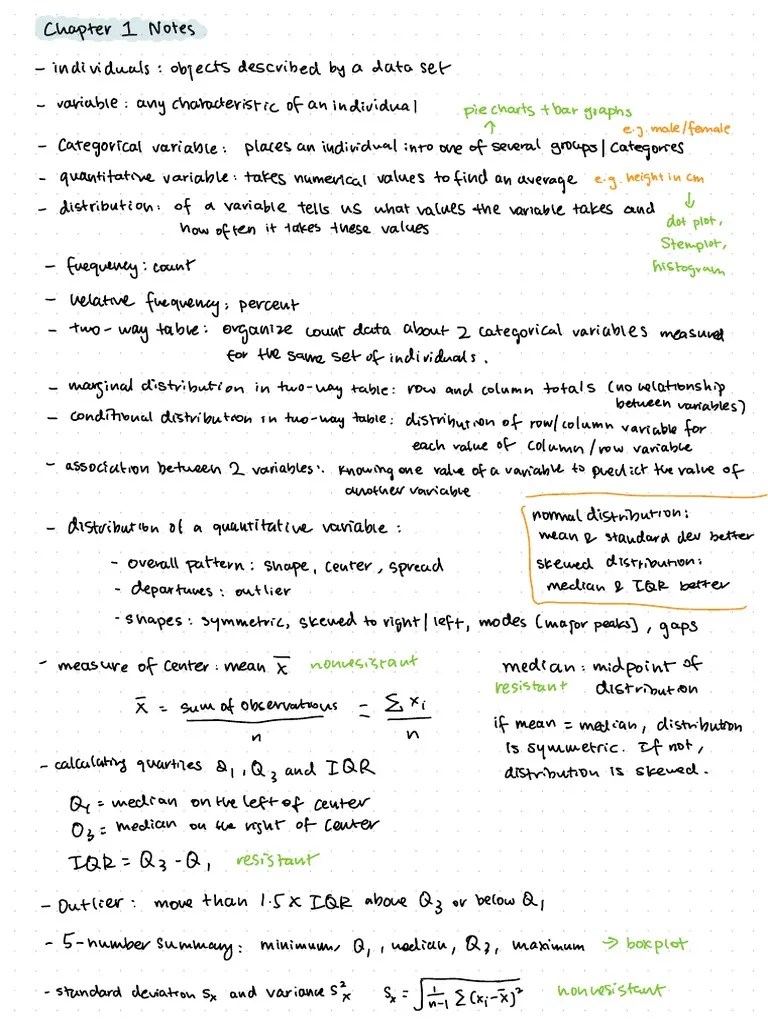 Chapter 1 Notes
- individuals: objects described by a data set
- variable: any characteristic of an individual
pie charts + bar graphs
↑
e.g. male/female
- Categorical variable: places an individual into one of several groups/categories
- quantitative variable: takes numerical values to find an average e.g. height in cm
↓
dot plot,
Stemplot,
histogram
- distribution: of a variable tells us what values the variable takes and
how often it takes these values
- frequency: count
- relative frequency: percent
- two-way table: organize count data about 2 categorical variables measured
for the same set of individuals.
- marginal distribution in two-way table: row and column totals (no relationship
between variables)
- conditional distribution in two-way table: distribution of row/column variable for
each value of column/row variable
- association between 2 variables: knowing one value of a variable to predict the value of
another variable
normal distribution:
mean & standard dev better
skewed distribution:
median & IQR better
- distribution of a quantitative variable:
- overall pattern: shape, center, spread
- departures: outlier
- shapes: symmetric, skewed to right/left, modes (major peaks), gaps
- measure of center: mean x̄ nonresistant
x̄ = sum of observations / n = Σxi / n
median: midpoint of
resistant distribution
if mean = median, distribution
is symmetric. If not,
distribution is skewed.
- calculating quartiles Q1, Q3 and IQR
Q1 = median on the left of center
Q3 = median on the right of center
IQR = Q3 - Q1 resistant
- Outlier: move than 1.5 x IQR above Q3 or below Q1
- 5-number summary: minimum, Q1, median, Q3, maximum → boxplot
- standard deviation Sx and variance S²x Sx = √(1/(n-1) Σ(xi-x̄)²) nonresistant